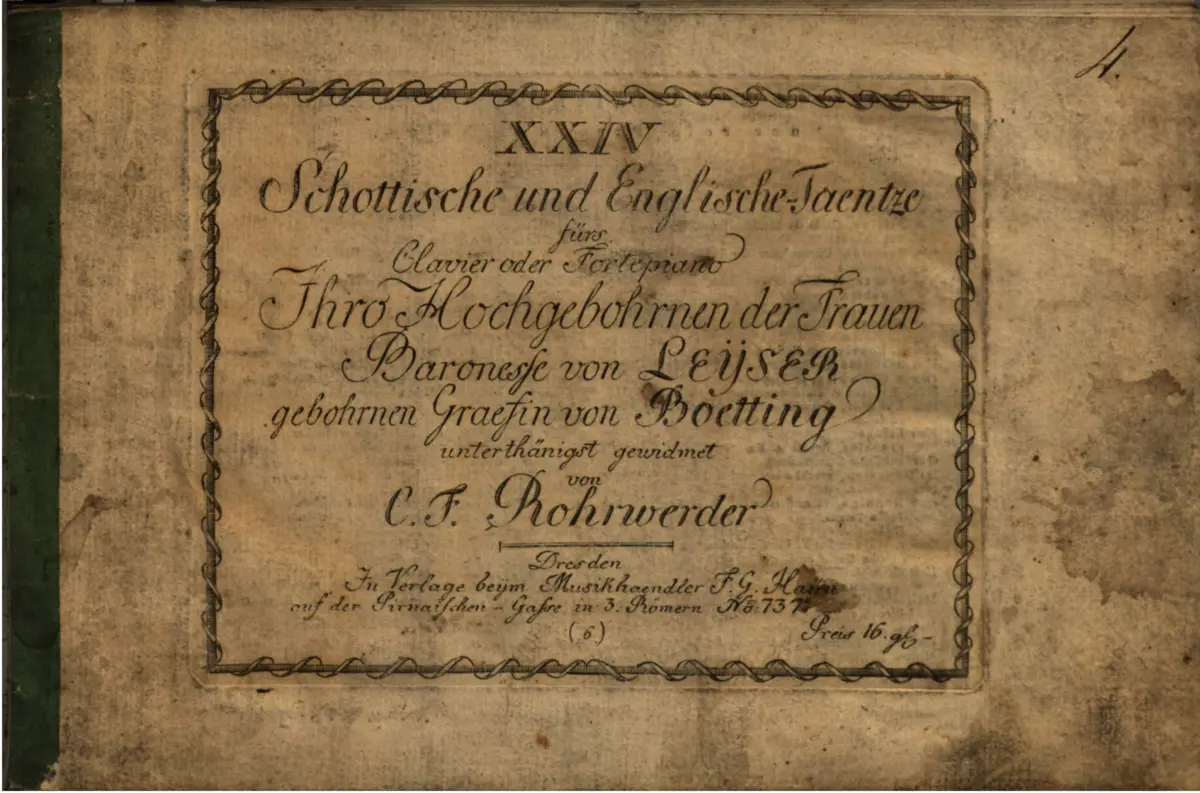 4.
XXIV
Schottische und Englische-Taentze
fürs
Clavier oder Fortepiano
Ihro Hochgebohrnen der Frauen
Baronesse von LEŸSER
gebohrnen Graefin von Boetting
unterthänigst gewidmet
von
C. F. Rohrwerder
Dresden
In Verlage beÿm Musikhaendler F. G.
auf der Pirnaischen - Gasse in 3. Römern No. 737.
(6)
Preis 16. gl -